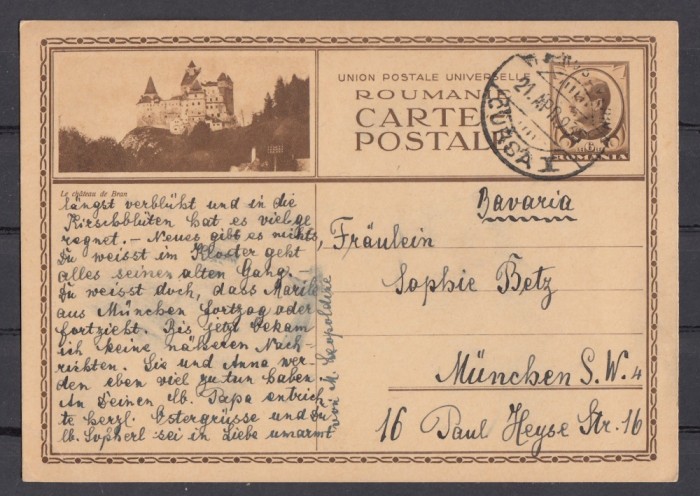 UNION POSTALE UNIVERSELLE
ROUMANIE
CARTE
POSTALE
21. APR
CURSA I
6
ROMANIA
Le château de Bran
längst verblüht und in die
Kirschblüten hat es viel ge
regnet. – Neues gibt es nichts,
Du weisst im Kloster geht
alles seinen alten Gang.
Du weisst doch, dass Marile
aus München fortzog oder
fortzieht. Bis jetzt bekam
ich keine näheren Nach-
richten. Sie und Anna wer-
den eben viel zu tun haben.
An Deinen lb. Papa entrich-
te herzl. Ostergrüsse und Du
lb. Sopherl sei in Liebe umarmt
von M. Leopoldine
Bavaria
Fräulein
Sophie Betz
München S.W. 4
16 Paul Heyse Str. 16